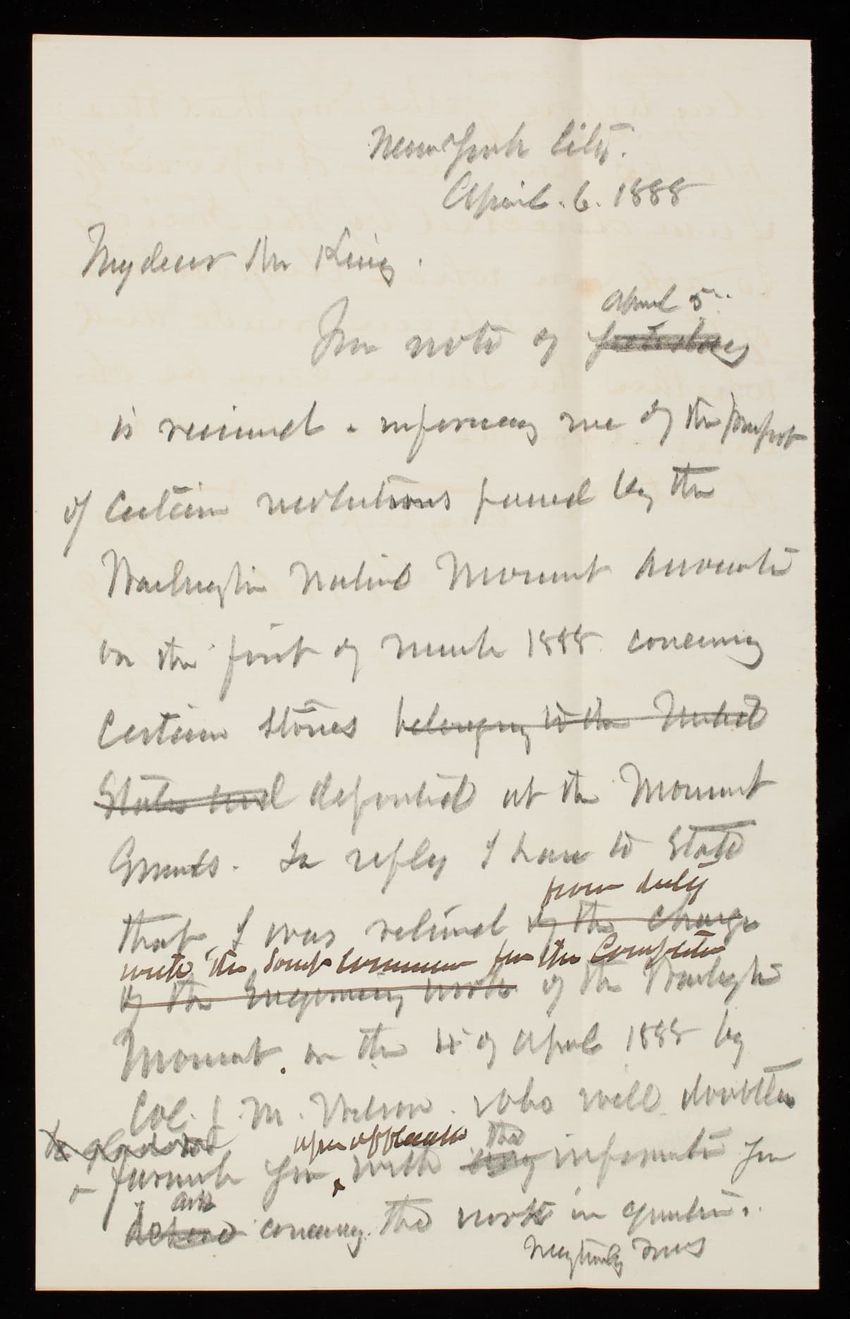 New York City.
April. 6. 1888
My dear Mr King.
April 5
Your note of yesterday
is received - informing me of the purport
of certain resolutions passed by the
Washington National Monument Association
on the first of March 1888 concerning
certain stones belonging to the United
States and deposited at the Monument
Grounds. In reply I have to state
from duty
that I was relieved of the charge
with the Joint Commission for the Completion
of the Engineering work of the Washington
Monument. on the 4 of April 1888 by
Col. J. M. Wilson. who will doubtless
be glad to
upon application the
furnish you with any information you
ask
desire concerning the work in question.
Very truly yours